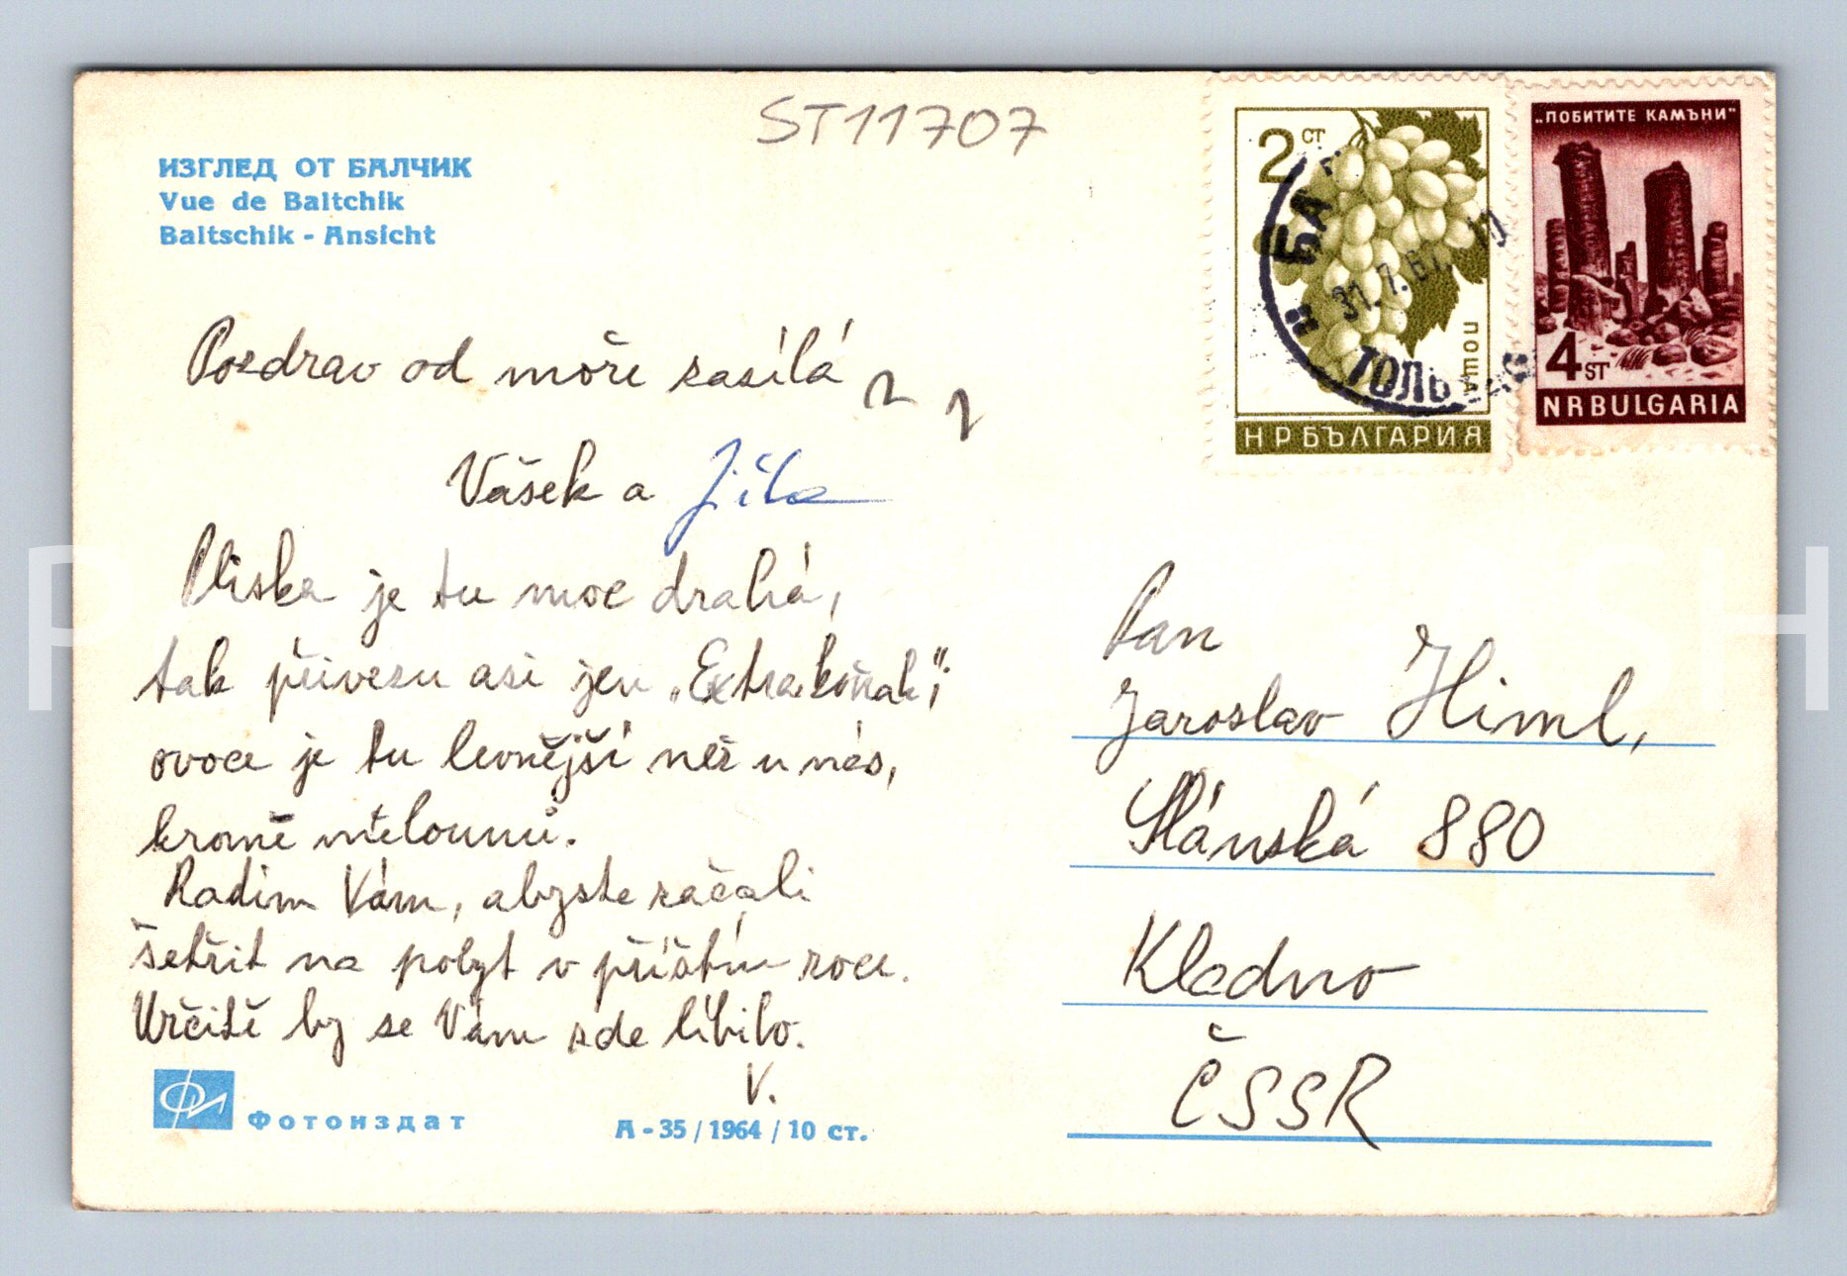 ST11707
ИЗГЛЕД ОТ БАЛЧИК
Vue de Baltchik
Baltschik - Ansicht
2 СТ
ПОЩА
НР БЪЛГАРИЯ
„ПОБИТИТЕ КАМЪНИ"
4 ST
NR BULGARIA
31.7.67
Pozdrav od moře zasílá
Vášek a
Pliska je tu moc drahá,
tak přivezu asi jen „Extrakoňak";
ovoce je tu levnější než u nás,
kromě melounů.
Radím Vám, abyste začali
šetřit na pobyt v příštím roce.
Určitě by se Vám zde líbilo.
V.
Pan
Jaroslav Himl,
Slánská 880
Kladno
ČSSR
Фотоиздат
А - 35 / 1964 / 10 ст.